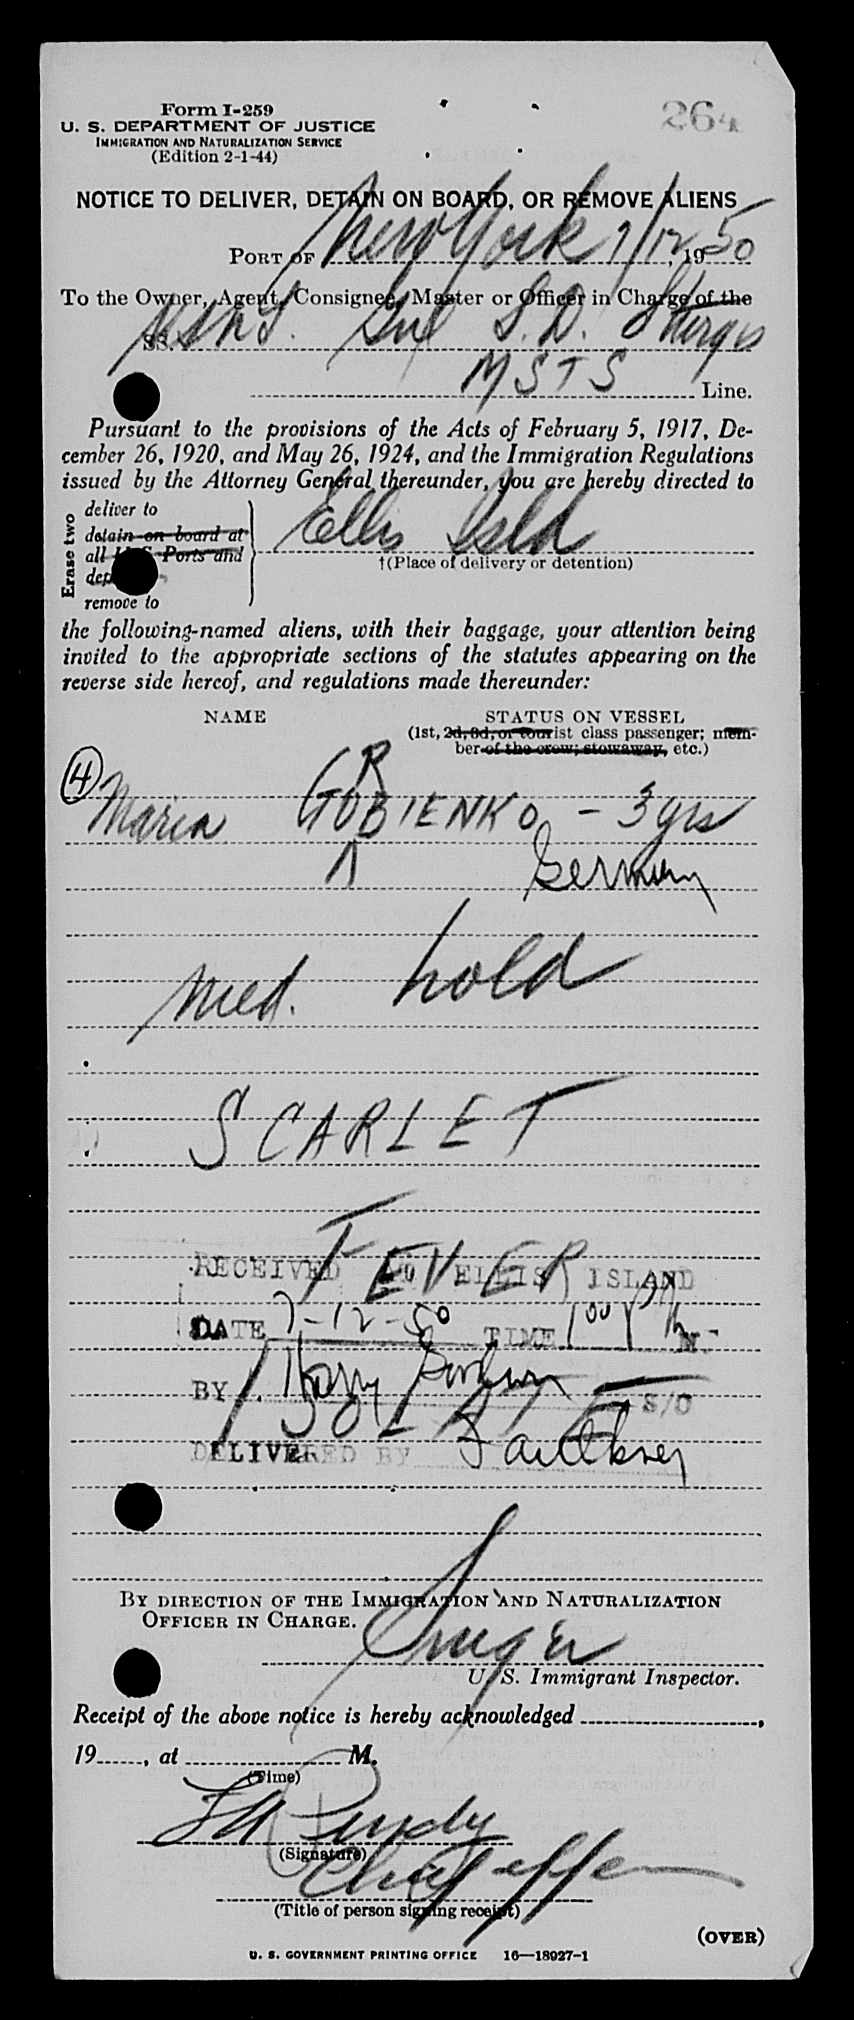 Form I-259
U. S. DEPARTMENT OF JUSTICE
IMMIGRATION AND NATURALIZATION SERVICE
(Edition 2-1-44)
264
NOTICE TO DELIVER, DETAIN ON BOARD, OR REMOVE ALIENS
PORT OF New York 7/12, 1950
To the Owner, Agent, Consignee, Master or Officer in Charge of the
SS. USNS. Gnl S. D. Sturgis
MSTS Line.
Pursuant to the provisions of the Acts of February 5, 1917, De-
cember 26, 1920, and May 26, 1924, and the Immigration Regulations
issued by the Attorney General thereunder, you are hereby directed to
Erase two
deliver to
detain on board at
all U. S. Ports and
remove to
Ellis Isld
†(Place of delivery or detention)
the following-named aliens, with their baggage, your attention being
invited to the appropriate sections of the statutes appearing on the
reverse side hereof, and regulations made thereunder:
NAME STATUS ON VESSEL
(1st, 2d, 3d, or tourist class passenger; mem-
ber of the crew; stowaway, etc.)
4
R
Maria GUBIENKO - 3 yrs
Germany
Med. hold
SCARLET
FEVER
RECEIVED AT ELLIS ISLAND
DATE 7-12-50 TIME 1 00 P M.
BY Harry S/O
ISOLATE
DELIVERED BY Faulkner
BY DIRECTION OF THE IMMIGRATION AND NATURALIZATION
OFFICER IN CHARGE.
Singer
U. S. Immigrant Inspector.
Receipt of the above notice is hereby acknowledged ,
19 , at M.
(Time)
(Signature)
Chief officer
(Title of person signing receipt)
(OVER)
U. S. GOVERNMENT PRINTING OFFICE 16—18927-1